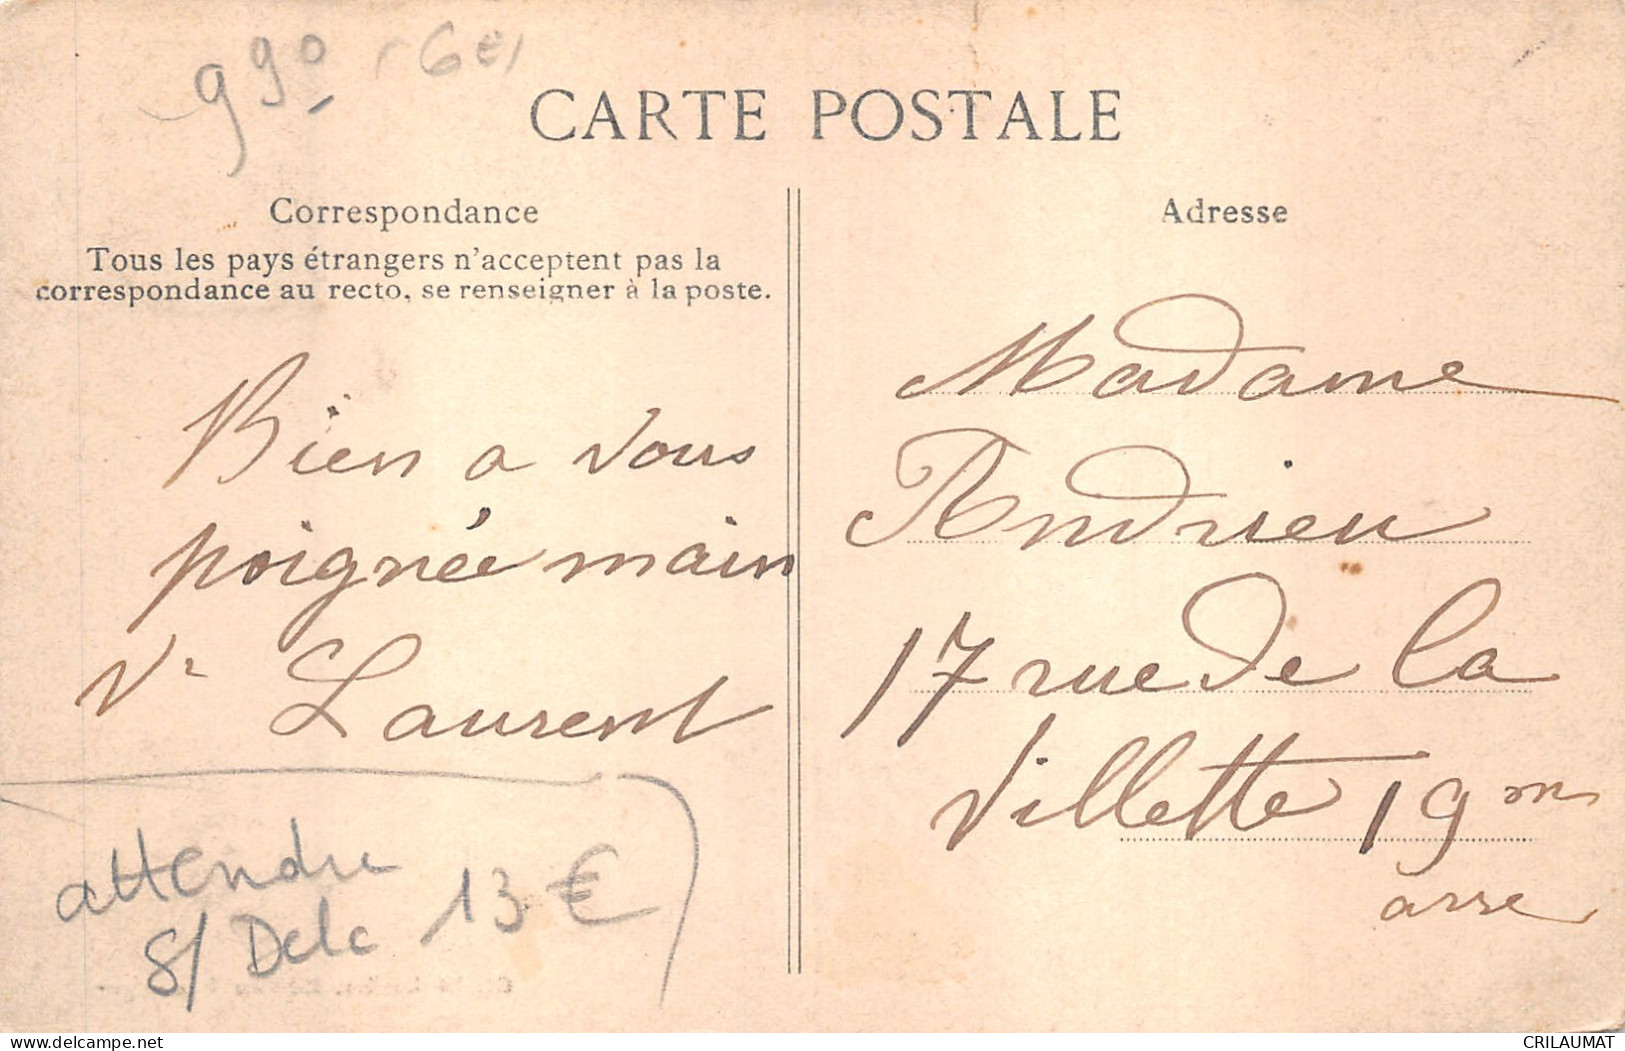 990 (6€)
CARTE POSTALE
Correspondance
Tous les pays étrangers n'acceptent pas la
correspondance au recto, se renseigner à la poste.
Bien a vous
poignée main
Vr Laurent
attendre
s/ Delc 13 €
Adresse
Madame
Andrieu
17 rue de la
Villette 19me
arre
www.delcampe.net
CRILAUMAT